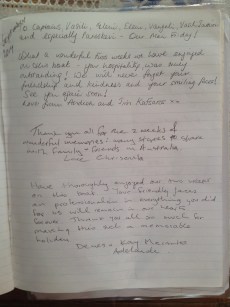 To Captains Vasili,
and especially Our Man Friday!
What a wonderful five weeks we have enjoyed
on this boat - your hospitality was truly
outstanding! We will never forget your
friendship and kindness and your smiling faces!
See you again soon!
Love from Andrea and xx
Thank you all for the 2 weeks of
wonderful memories! many stories to share
with family & friends in Australia
Love Christella
Have thoroughly enjoyed our one week
on this boat. Your friendly faces
and professionalism in everything you did
for us will remain in our hearts
forever. Thank you all so much for
making this such a memorable
holiday.
Denis & Kay
Adelaide